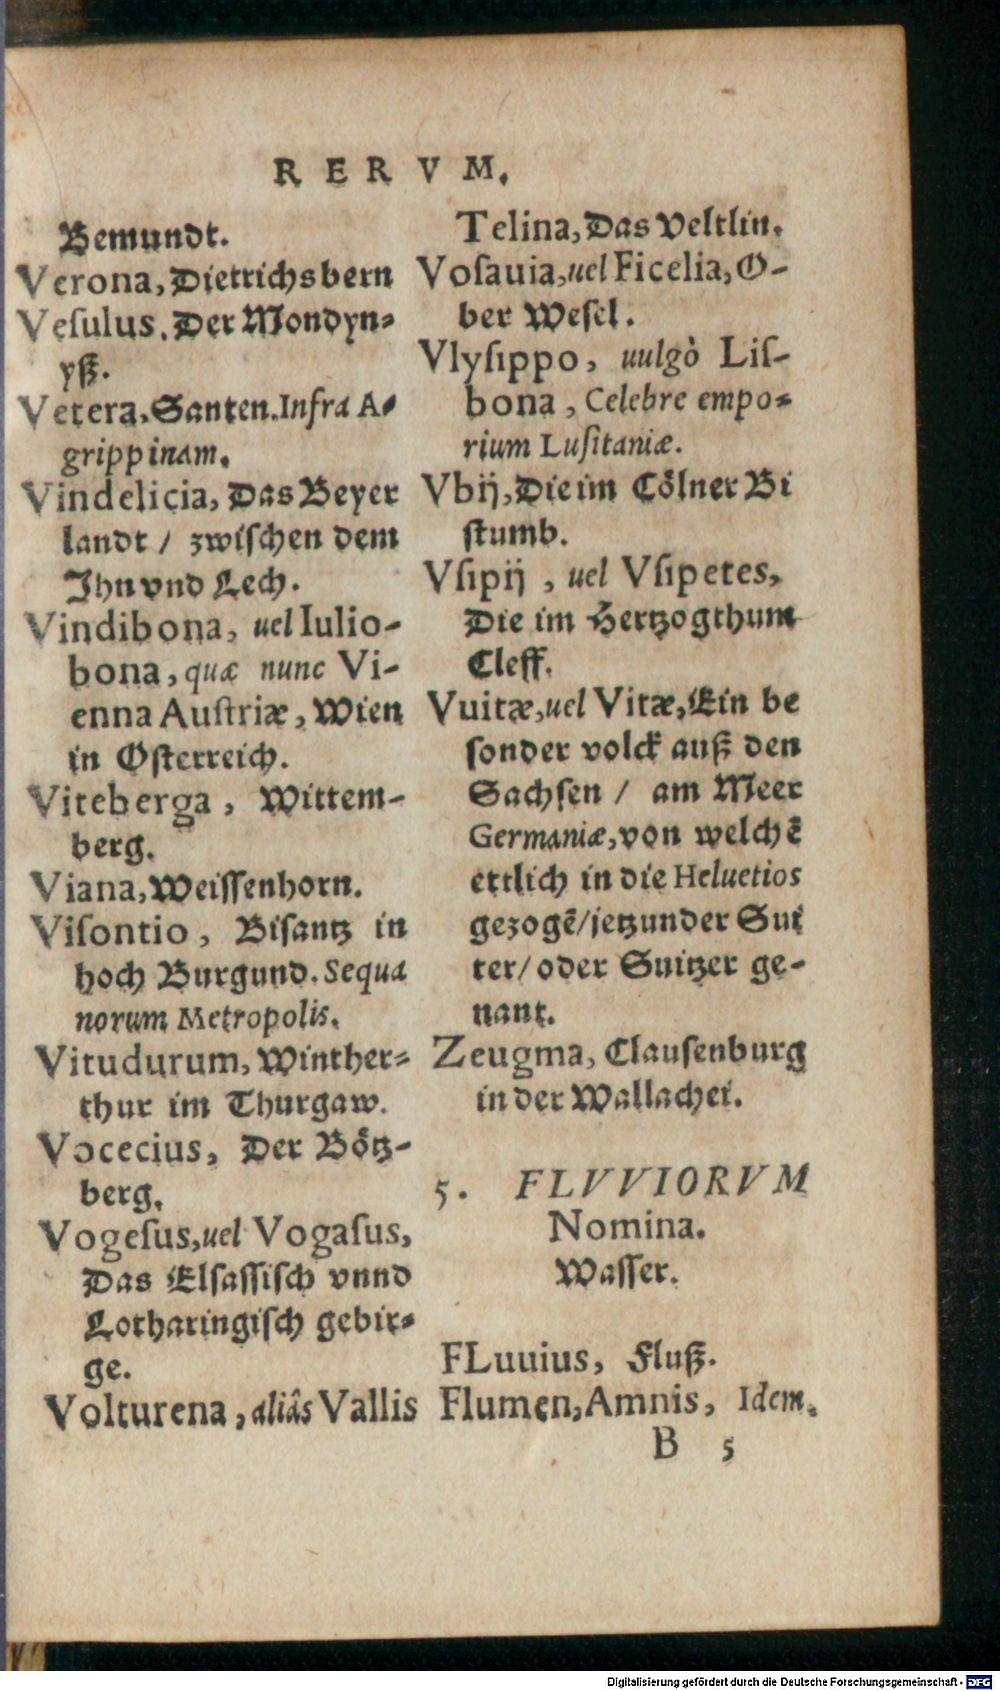 RERVM.
Bemundt.
Verona, Dietrichsbern
Veſulus. Der Mondyn⸗
yß.
Vetera, Santen. Infra A⸗
grippinam.
Vindelicia, Das Beyer
landt / zwiſchen dem
Ihn vnd Lech.
Vindibona, uel Iulio-
bona, quæ nunc Vi-
enna Auſtriæ, Wien
in Oſterreich.
Viteberga, Wittem-
berg.
Viana, Weiſſenhorn.
Viſontio, Biſantz in
hoch Burgund. Sequa
norum Metropolis.
Vitudurum, Winther⸗
thur im Thurgaw.
Vocecius, Der Bötz-
berg.
Vogeſus, uel Vogaſus,
Das Elſaſſiſch vnnd
Lotharingiſch gebir⸗
ge.
Volturena, aliâs Vallis
Telina, Das Veltlin.
Voſauia, uel Ficelia, O-
ber Weſel.
Vlyſippo, uulgò Liſ-
bona, Celebre empo⸗
rium Luſitaniæ.
Vbij, Die im Cölner Bi
ſtumb.
Vſipij, uel Vſipetes,
Die im Hertzogthum
Cleff.
Vuitæ, uel Vitæ, Ein be
ſonder volck auß den
Sachſen / am Meer
Germaniæ, von welchē
ettlich in die Heluetios
gezogē / jetzunder Sui
ter / oder Suitzer ge-
nant.
Zeugma, Clauſenburg
in der Wallachei.
5. FLVVIORVM
Nomina.
Waſſer.
FLuuius, Fluß.
Flumen, Amnis, Idem.
B 5
Digitalisierung gefördert durch die Deutsche Forschungsgemeinschaft - DFG